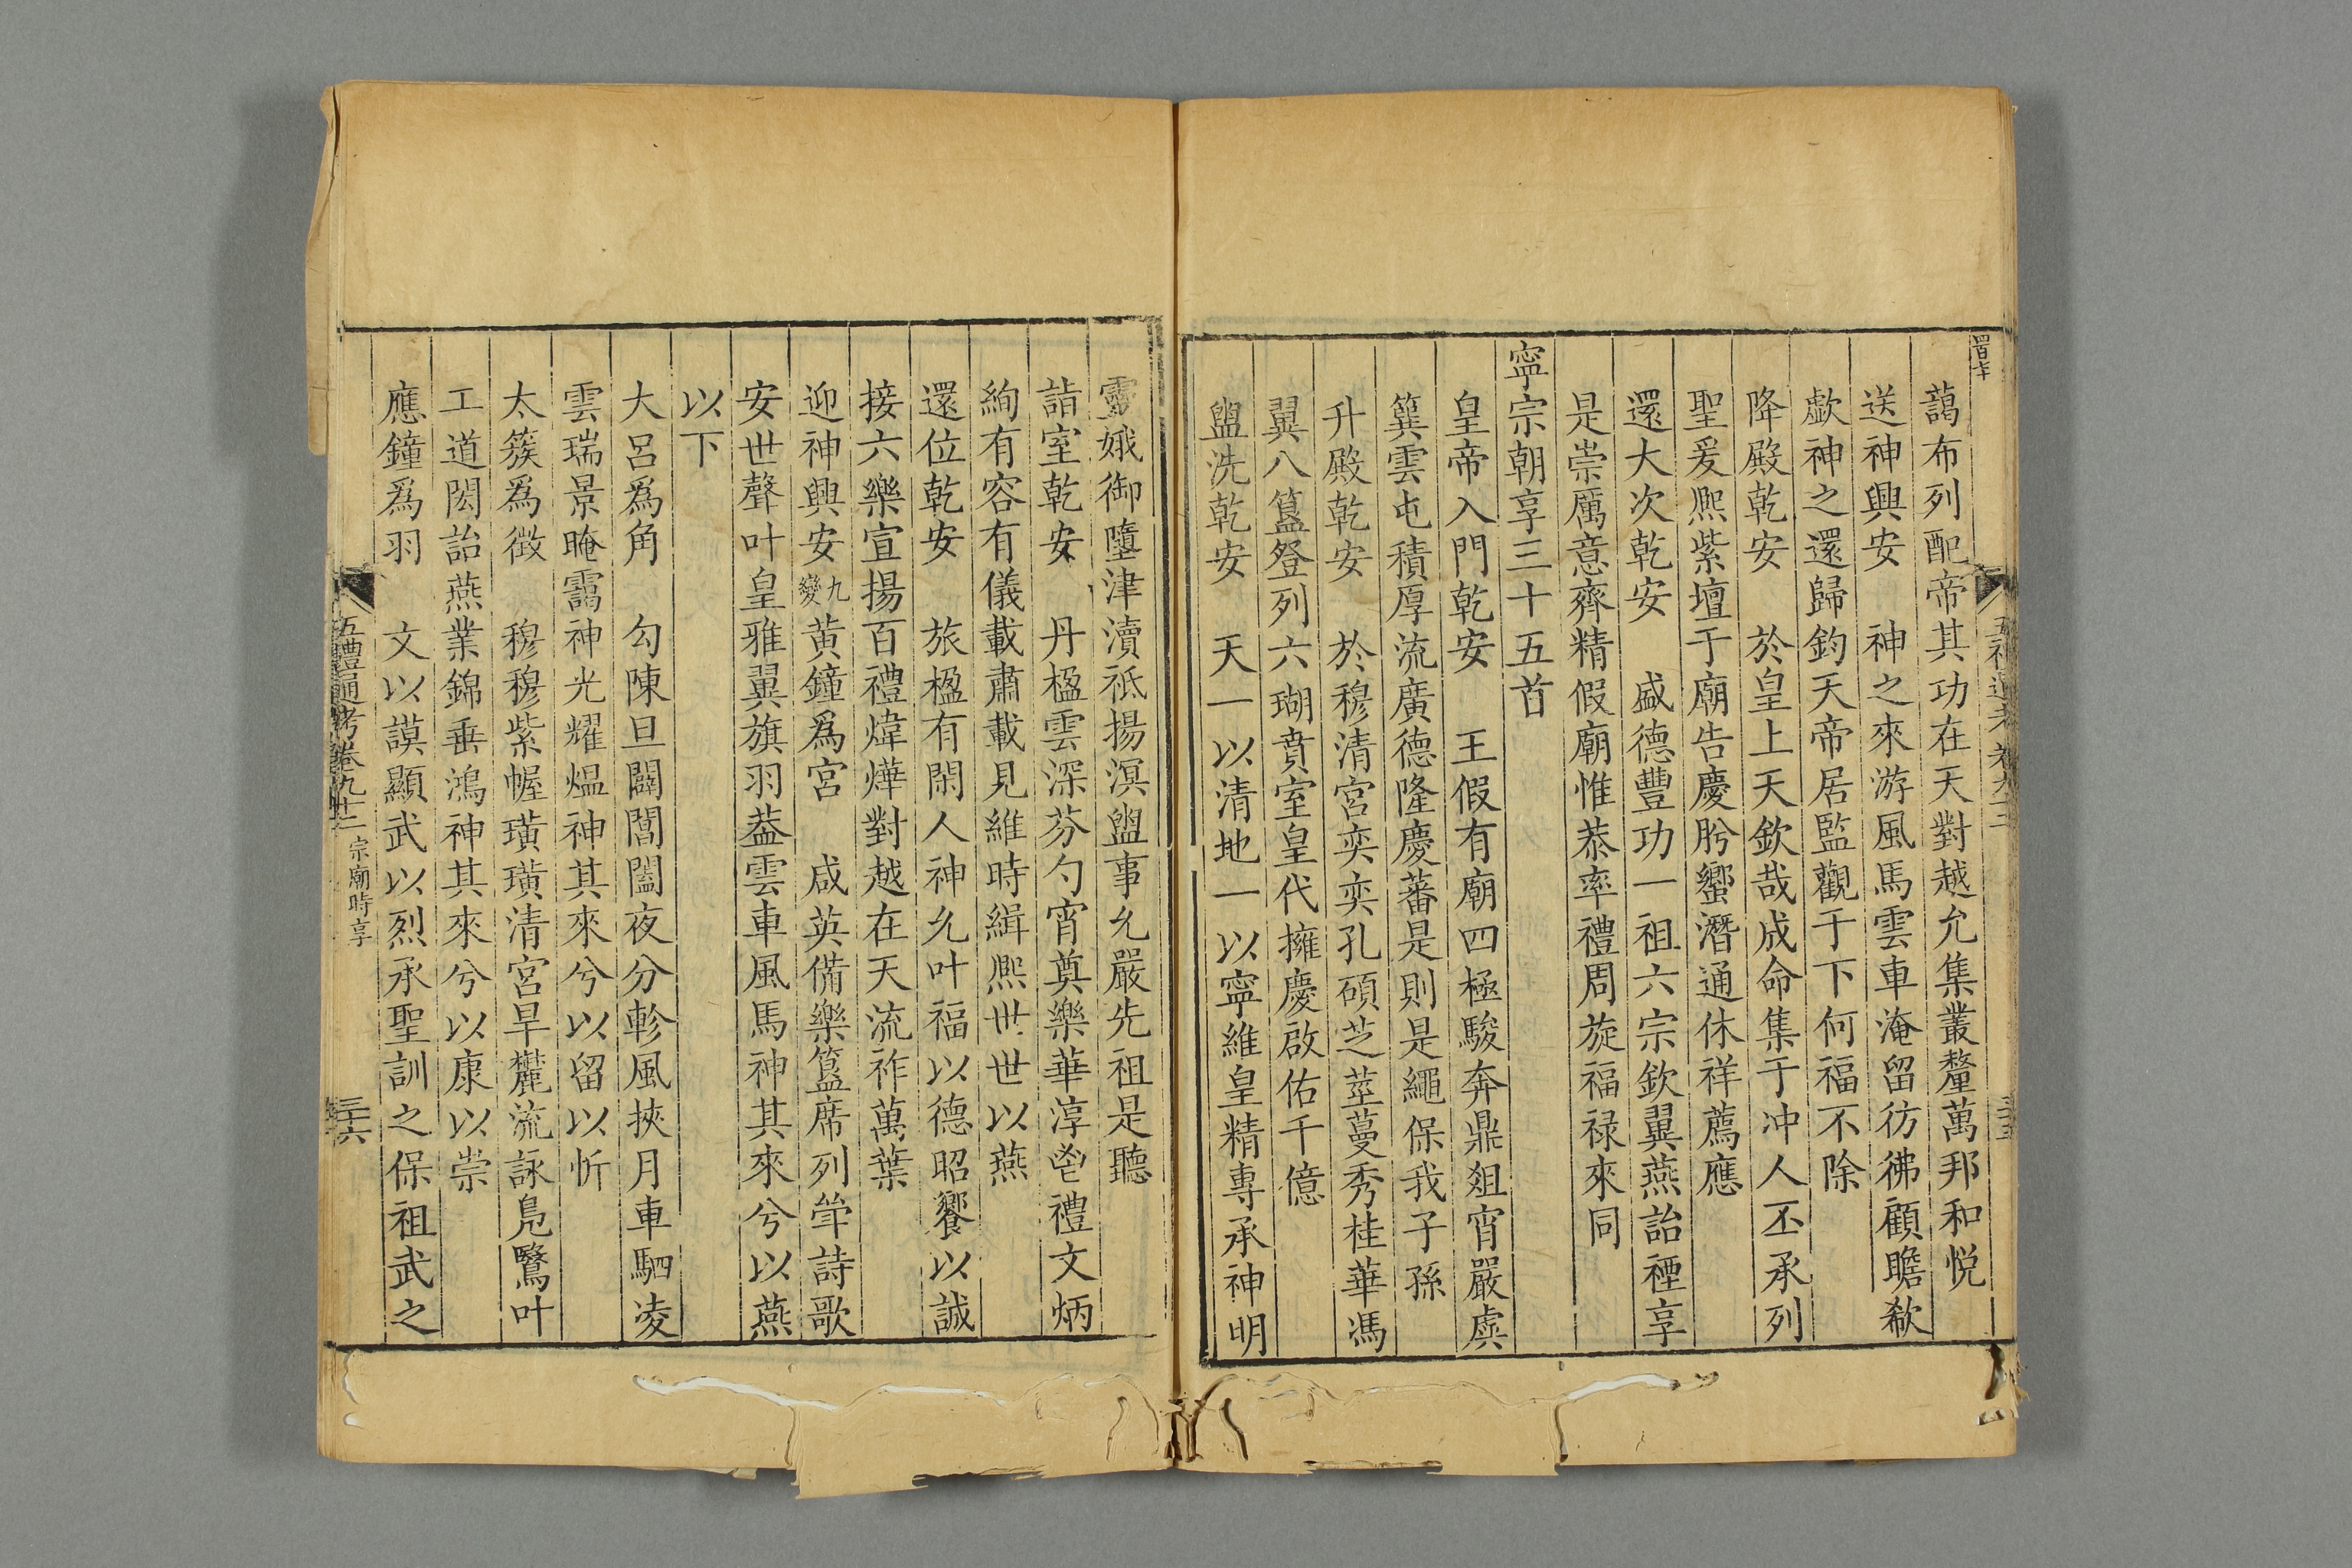 藹布列配帝其功在天對越允集叢釐萬邦和悅
送神興安　神之來游風馬雲車淹留彷彿顧瞻欷
歔神之還歸鈞天帝居監觀于下何福不除
降殿乾安　於皇上天欽哉成命集于冲人丕承列
聖爰熙紫壇于廟告慶肹蠁潛通休祥薦應
還大次乾安　盛德豐功一祖六宗欽翼燕詒禋享
是崇厲意齊精假廟惟恭率禮周旋福祿來同
寧宗朝享三十五首
皇帝入門乾安　王假有廟四極駿奔鼎俎宵嚴虡
簨雲屯積厚流廣德隆慶蕃是則是繩保我子孫
升殿乾安　於穆清宮奕奕孔碩芝莖蔓秀桂華馮
翼八簋登列六瑚賁室皇代擁慶啟佑千億
盥洗乾安　天一以清地一以寧維皇精專承神明
靈娥御墮津瀆祇揚溟盥事允嚴先祖是聽
詣室乾安　丹楹雲深芬勺宵奠樂華淳鬯禮文炳
絢有容有儀載肅載見維時緝熙世世以燕
還位乾安　旅楹有閑人神允叶福以德昭饗以誠
接六樂宣揚百禮煒燁對越在天流祚萬葉
迎神興安九變　黃鐘爲宮　咸英備樂簋席列筓詩歌
安世聲叶皇雅翼旗羽葢雲車風馬神其來兮以燕
以下
大呂爲角　勾陳旦闢閶闔夜分軫風挾月車駟凌
雲瑞景晻靄神光耀熅神其來兮以留以忻
太簇爲徵　穆穆紫幄璜璜清宮旱麓流詠鳧鷖叶
工道閎詒燕業錦垂鴻神其來兮以康以崇
應鐘爲羽　文以謨顯武以烈承聖訓之保祖武之
五禮通考卷九十二　宗廟時享　三十六